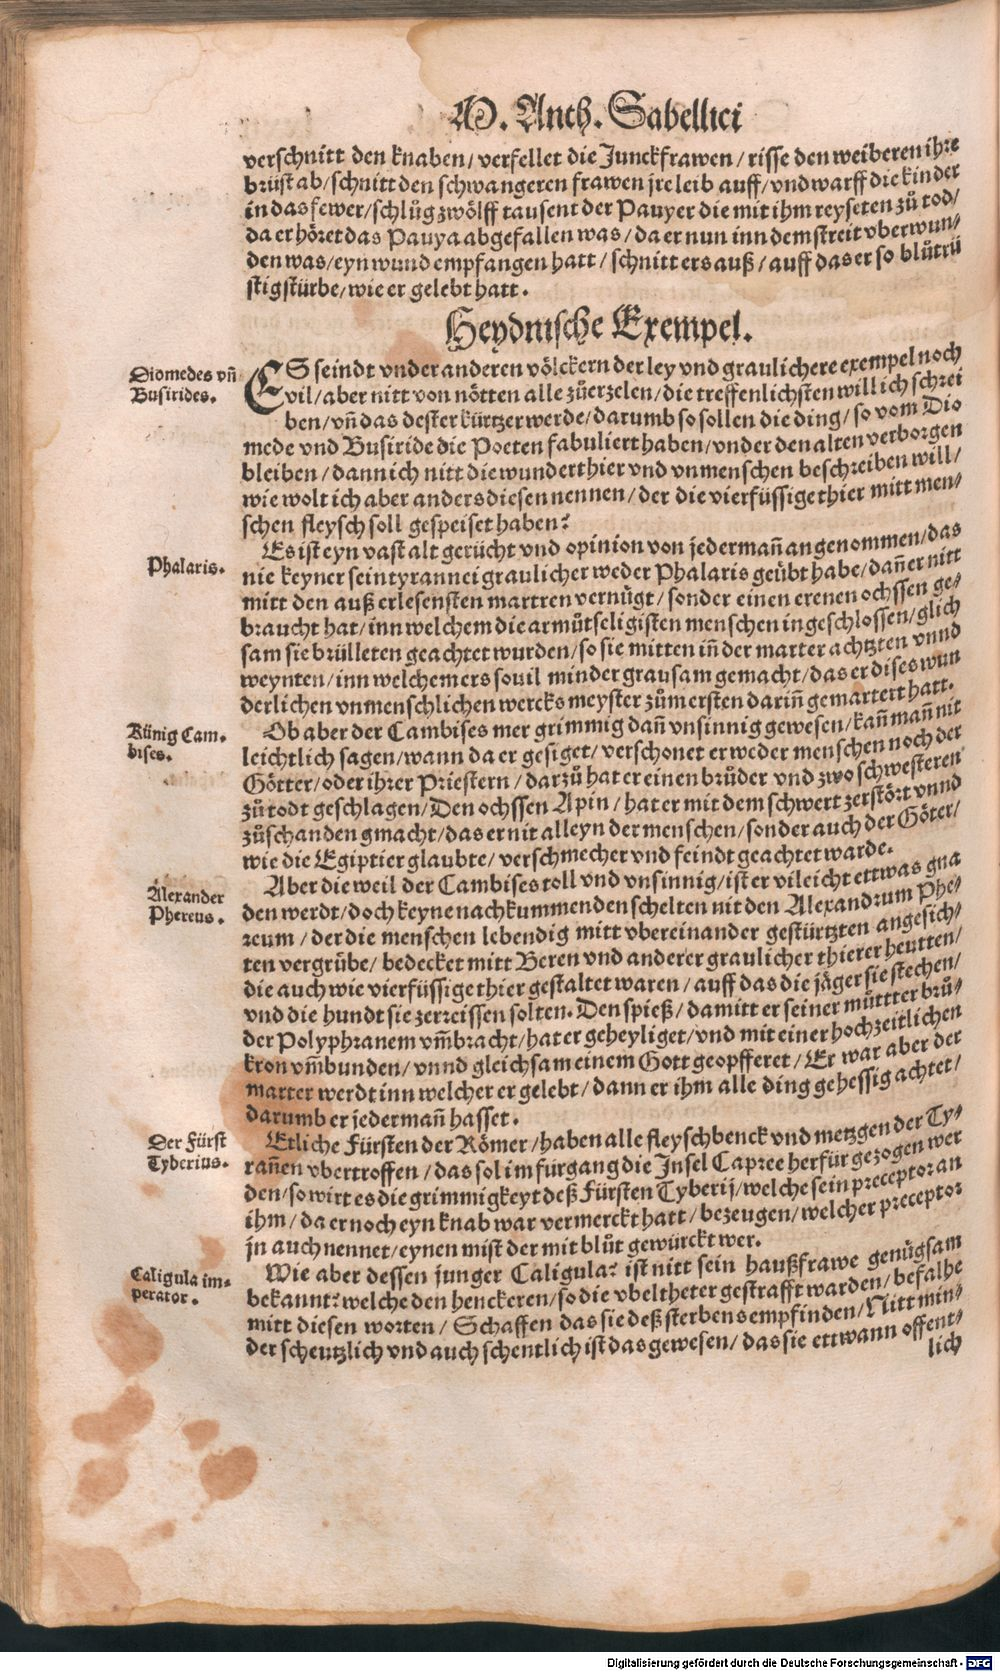 M. Anth. Sabellici
verschnitt den knaben/ verfellet die Junckfrawen/ risse den weiberen ihre
brüst ab/ schnitt den schwangeren frawen jre leib auff/ vnd warff die kinder
in das fewer/ schlůg zwölff tausent der Pauyer die mit ihm reyseten zů tod/
da er höret das Pauya abgefallen was/ da er nun inn dem streit vberwun-
den was/ eyn wund empfangen hatt/ schnitt ers auß/ auff das er so blůtrü
stig stürbe/ wie er gelebt hatt.
Heydnische Exempel.
Diomedes vñ
Busirides.
ES seindt vnder anderen völckern der ley vnd graulichere exempel noch
vil/ aber nitt von nötten alle zůerzelen/ die treffenlichsten will ich schrei
ben/ vñ das dester kürtzer werde/ darumb so sollen die ding/ so vom Dio
mede vnd Busiride die Poeten fabuliert haben/ vnder den alten verborgen
bleiben/ dann ich nitt die wunderthier vnd vnmenschen beschreiben will/
wie wolt ich aber anders diesen nennen/ der die vierfüssige thier mitt men-
schen fleysch soll gespeiset haben?
Phalaris.
Es ist eyn vast alt gerücht vnd opinion von jedermañ angenommen/ das
nie keyner sein tyrannei graulicher weder Phalaris geübt habe/ dañ er nitt
mitt den auß erlesensten martren vernügt/ sonder einen erenen ochssen ge-
braucht hat/ inn welchem die armůtseligisten menschen ingeschlossen/ glich
sam sie brülleten geachtet wurden/ so sie mitten iñ der marter achtzten vnnd
weynten/ inn welchem ers souil minder grausam gemacht/ das er dises wun
derlichen vnmenschlichen wercks meyster zům ersten dariñ gemartert hatt.
Künig Cam-
bises.
Ob aber der Cambises mer grimmig dañ vnsinnig gewesen/ kañ mañ nit
leichtlich sagen/ wann da er gesiget/ verschonet er weder menschen noch der
Götter/ oder ihrer Priestern/ darzů hat er einen brůder vnd zwo schwesteren
zů todt geschlagen/ Den ochssen Apin/ hat er mit dem schwert zerstört vnnd
zůschanden gmacht/ das er nit alleyn der menschen/ sonder auch der Göter/
wie die Egiptier glaubte/ verschmecher vnd feindt geachtet warde.
Alexander
Phereus.
Aber die weil der Cambises toll vnd vnsinnig/ ist er vileicht ettwas gna
den werdt/ doch keyne nachkummenden schelten nit den Alexandrum Phe-
reum/ der die menschen lebendig mitt vbereinander gestürtzten angesich-
ten vergrübe/ bedecket mitt Beren vnd anderer graulicher thierer heutten/
die auch wie vierfüssige thier gestaltet waren/ auff das die jäger sie stechen/
vnd die hundt sie zerreissen solten. Den spieß/ damitt er seiner můttter brů-
der Polyphranem vm̃bracht/ hat er geheyliget/ vnd mit einer hochzeitlichen
kron vm̃bunden/ vnnd gleichsam einem Gott geopfferet/ Er war aber der
marter werdt inn welcher er gelebt/ dann er ihm alle ding gehessig achtet/
darumb er jedermañ hasset.
Der Fürst
Tyberius.
Etliche Fürsten der Römer/ haben alle fleyschbenck vnd metzgen der Ty-
rañen vbertroffen/ das sol im fürgang die Insel Capree herfür gezogen wer
den/ so wirt es die grimmigkeyt deß Fürsten Tyberij/ welche sein preceptor an
ihm/ da er noch eyn knab war vermerckt hatt/ bezeugen/ welcher preceptor
jn auch nennet/ eynen mist der mit blůt gewürckt wer.
Caligula im-
perator.
Wie aber dessen junger Caligula? ist nitt sein haußfrawe genůgsam
bekannt? welche den henckeren/ so die vbeltheter gestrafft warden/ befalhe
mitt diesen worten/ Schaffen das sie deß sterbens empfinden/ Nitt min-
der scheutzlich vnd auch schentlich ist das gewesen/ das sie ettwann offent-
lich
Digitalisierung gefördert durch die Deutsche Forschungsgemeinschaft - DFG